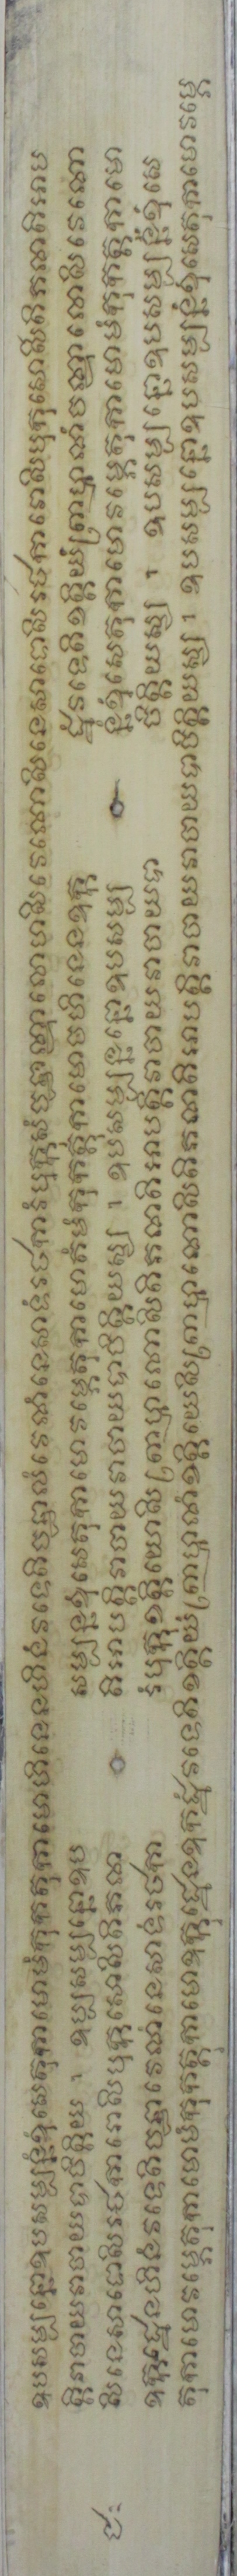 ឧបសម្បន្នោឧបសម្បន្នំខុំសេតុកាមោមំកុកតុកាមោហិនេនហិនំវទេតិចណ្ឌាលំវេណំនេសាទំរថការំបុក្កុសំចណ្ឌាលោសិវេណោសិនេសាទោសិរថការោសិបុកុសោសីតិភណតិអាប
ត្តិវាចាយវាចាយបាចិត្តិយ ។ ឧប្បសម្បន្នោឧប សម្បន្នខុំសេតុកាមោវម្ភេតុកាមោតំមំកុកត្តុកាមោចហិនេនឧក្ក ដ្ឋំវទេតិខត្តិយំព្រាហ្មណំចណ្ឌាលោសិវេណោ
សិនេសាទោសិរថការោសិបុក្កុសោសិតិភណ តិអាបត្តិវាចាយវាចាយបាចិត្តិយស្ស ។ ឧបសម្បន្នោឧបសម្ប ន្នំខុំសេតុកាមោវម្ភេតុកាមោមំកុកត្តកាមោ
ឧក្កដ្ឋេនហិនំវទេតិចណ្ឌាវេណំនេសាទំរថកា រំបុក្កុខត្តិយោសិព្រាហ្មណោសិតិភណតិអាបត្តិវាចាយវាចាយបា ចិត្តិយស្ស ។ ឧបសម្បន្នោឧបសម្បន្នំខុំសេ
តុកាមោវម្ភេតុកាមោមំកុកត្តុកាមោឧក្កដ្ឋេនឧកដ្ឋំវទេតិខត្តិយំព្រាហ្មណំខត្តិយេសិព្រាហ្មណោសិតិភណតិអាបត្តិវាចាយវាចាយបាចិត្តិយស្ស ។ ឧបសម្បន្នោឧបសម្បន្នំខុំសេតុកាមោវម្ភេ